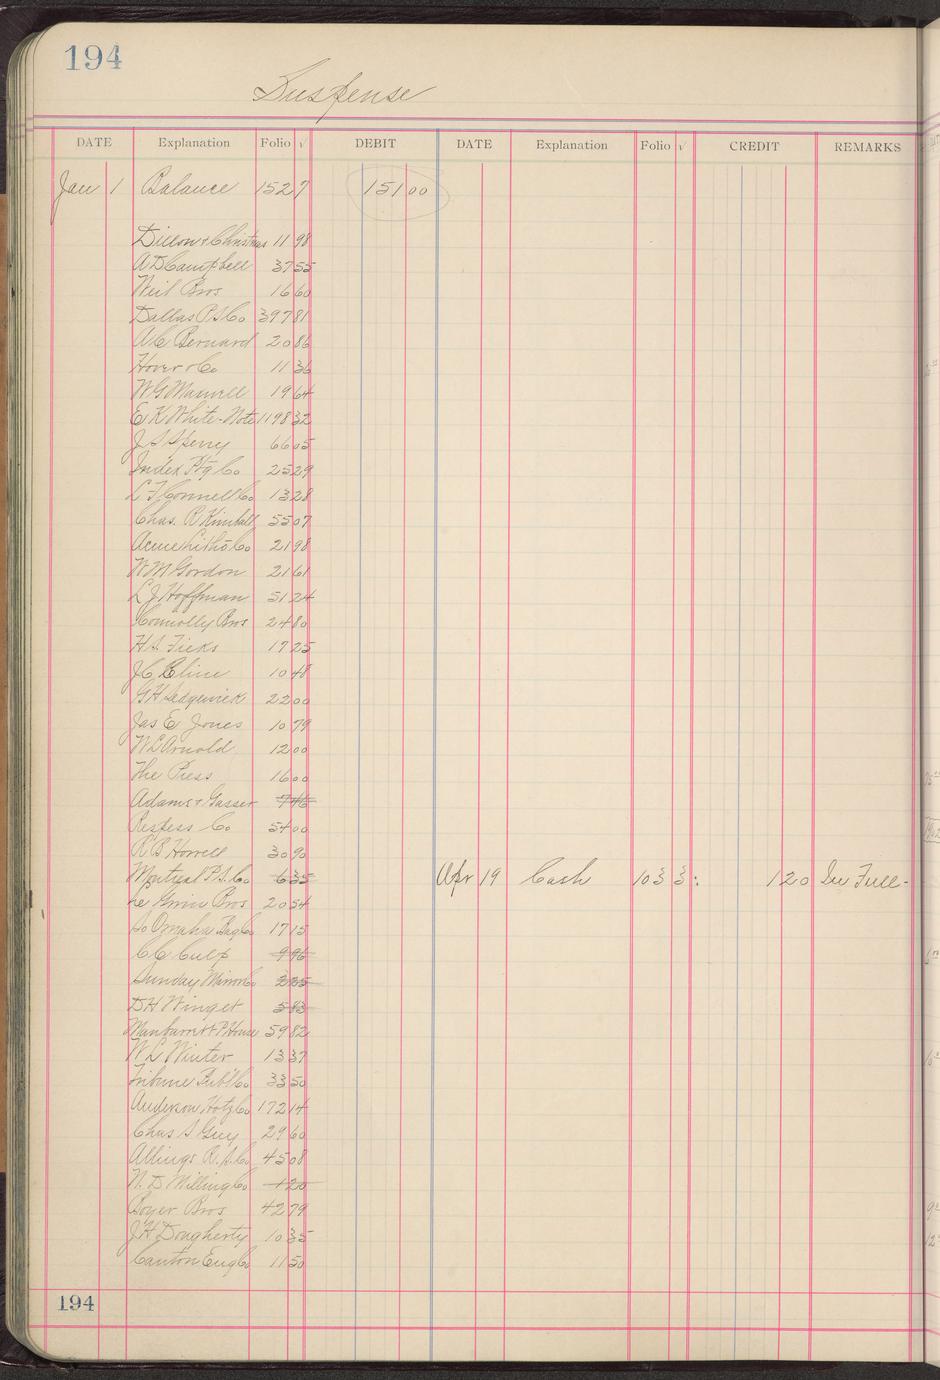 194
Suspense
DATE Explanation Folio √ DEBIT DATE Explanation Folio √ CREDIT REMARKS
Jan 1 Balance 1527 151 00
Dillon & Christmas 11 98
A D Campbell 37 55
Weil Bros 16 60
Dallas P S Co 397 81
A C Bernard 20 86
Hover & Co 11 36
W G Maxwell 19 64
E K White-Note 1198 32
J S Sperry 66 05
Index Ptg Co 25 29
L F Connell Co 13 28
Chas. R Kimball 55 07
Acme Litho Co 21 98
W M Gordon 21 61
L J Hoffman 51 24
Connolly Bros 24 80
H S Ficks 17 25
J C Cline 10 48
G H Sedgewick 22 00
Jas E Jones 10 79
W L Arnold 12 00
The Press 16 00
Adams & Gasser 7 46
Respess Co 54 00
R B Howell 30 90
Montreal P S Co 6 35 Apr 19 Cash 103 3: 1 20 In Full-
Bros 20 54
So Omaha Bag Co 17 15
C C Culp 9 96
Sunday Mirror Co 2 25
D H Winget 5 83
P House 59 82
W L Winter 13 37
Tribune Publ Co 33 50
Anderson, Hotz Co 172 14
Chas S Guy 29 60
Allings R. S. Co 45 08
N. D Milling Co 1 20
Boyer Bros 42 79
J H Dougherty 10 35
Canton Eng Co 11 50
194